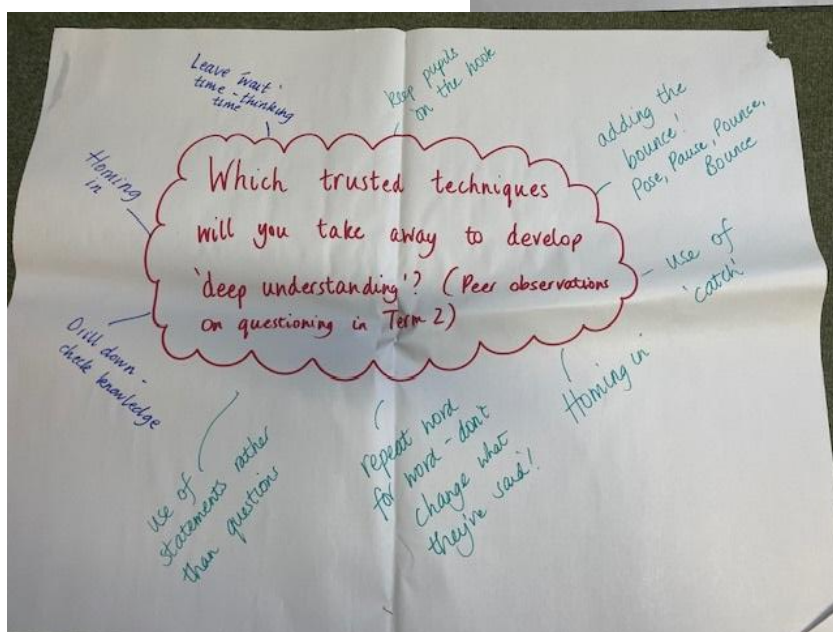 Which trusted techniques
will you take away to develop
'deep understanding'? (Peer observations
on questioning in Term 2)
Leave 'wait'
time - thinking
time
keep pupils
on the hook
adding the
bounce!
Pose, Pause, Pounce,
Bounce
use of
'catch'
Homing in
repeat word
for word - don't
change what
they've said!
use of
statements rather
than questions
Drill down -
check knowledge
Homing
in